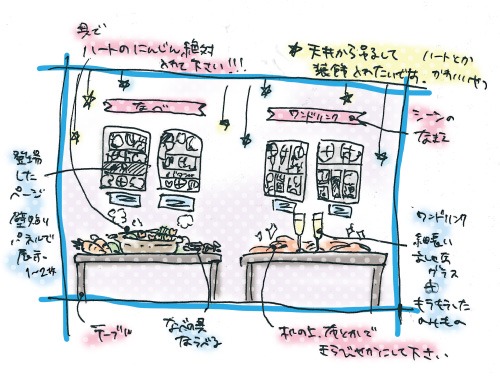 具で
ハートのにんじん絶対
入れて下さい!!!
天井から吊るして
装飾入れたいです。
ハートとか
かわいいやつ
なべ
ワンドリンク
シーンの
なまえ
登場
した
ページ
壁貼り
パネルで
展示
1~2枚
ワンドリンク
細長い
おしゃれ
グラス
キラキラした
のみもの
テーブル
なべの具
ならべる
机の上、布とかで